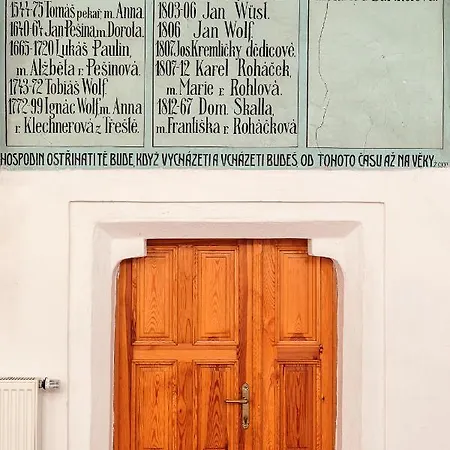 1544-75 Tomáš pekař m. Anna.
1640-64 Jan Pešina m. Dorola.
1665-1720 Lukáš Paulin,
m. Alžběla r. Pešinová.
1743-72 Tobiáš Wolf
1772-99 Ignác Wolf, m. Anna
r. Klechnerová z Třešlě.
1803-06 Jan Wüsl.
1806 Jan Wolf,
1807 Jos Kremličky dědicové.
1807-12 Karel Roháček,
m. Marie r. Rohlová.
1812-67 Dom. Skalla,
m. Franliška r. Roháčková
HOSPODIN OSTŘÍHATI TĚ BUDE, KDYŽ VYCHÁZETI A VCHÁZETI BUDEŠ, OD TOHOTO ČASU AŽ NA VĚKY.